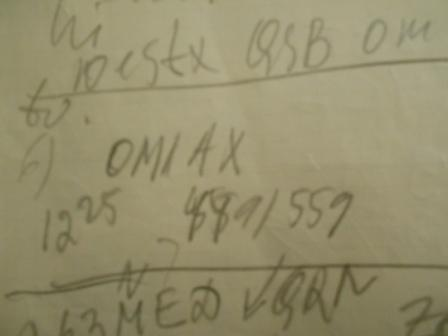 hi
10 estx QSB Om
tu.
6) OM1AX
12²⁵ 589/559
N
63 MED VQRN 7